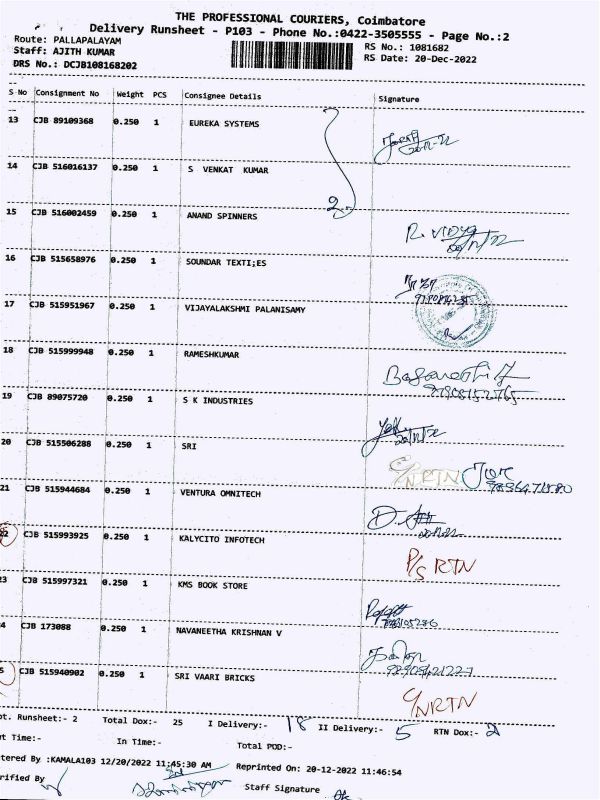 THE PROFESSIONAL COURIERS, Coimbatore
Delivery Runsheet - P103 - Phone No.:0422-3505555 - Page No.:2
Route: PALLAPALAYAM
RS No.: 1081682
Staff: AJITH KUMAR
RS Date: 20-Dec-2022
DRS No.: DCJB108168202
S No Consignment No Weight PCS Consignee Details Signature
13 CJB 89109368 0.250 1 EUREKA SYSTEMS
20-12-22
14 CJB 516016137 0.250 1 S VENKAT KUMAR
2
15 CJB 516002459 0.250 1 ANAND SPINNERS
R. VIDYA
20/12/22
16 CJB 515658976 0.250 1 SOUNDAR TEXTI;ES
17 CJB 515951967 0.250 1 VIJAYALAKSHMI PALANISAMY
18 CJB 515999948 0.250 1 RAMESHKUMAR
19 CJB 89075720 0.250 1 S K INDUSTRIES
20/12/22
20 CJB 515506288 0.250 1 SRI
C/N RTN
21 CJB 515944684 0.250 1 VENTURA OMNITECH
22 CJB 515993925 0.250 1 KALYCITO INFOTECH
P/S RTN
23 CJB 515997321 0.250 1 KMS BOOK STORE
4 CJB 173088 0.250 1 NAVANEETHA KRISHNAN V
5 CJB 515940902 0.250 1 SRI VAARI BRICKS
C/N RTN
ot. Runsheet:- 2 Total Dox:- 25 I Delivery:- 18 II Delivery:- 5 RTN Dox:- 2
ut Time:- In Time:- Total POD:-
tered By :KAMALA103 12/20/2022 11:45:30 AM Reprinted On: 20-12-2022 11:46:54
rified By Staff Signature